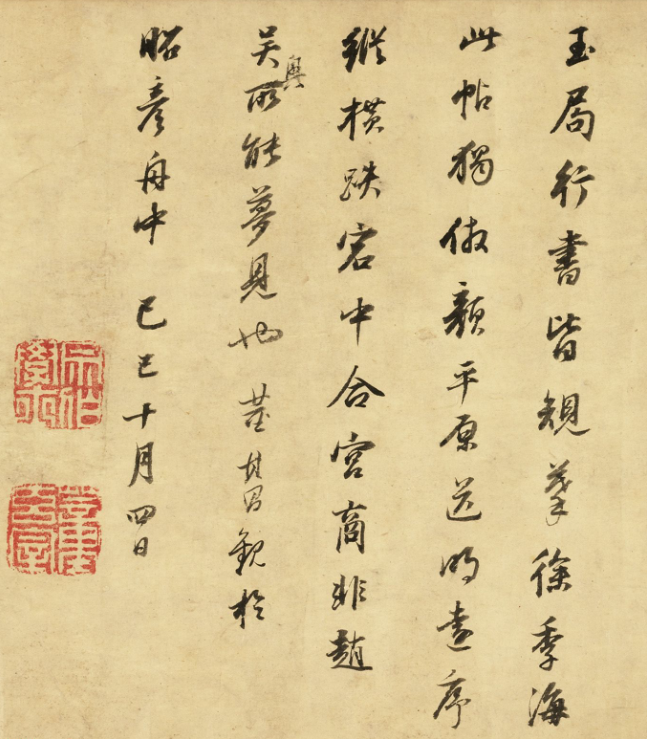 玉局行書皆規摹徐季海
此帖獨倣顏平原送明遠序
縱橫跌宕中合宮商非趙
吳興所能夢見也董其昌觀於
昭彥舟中己巳十月四日